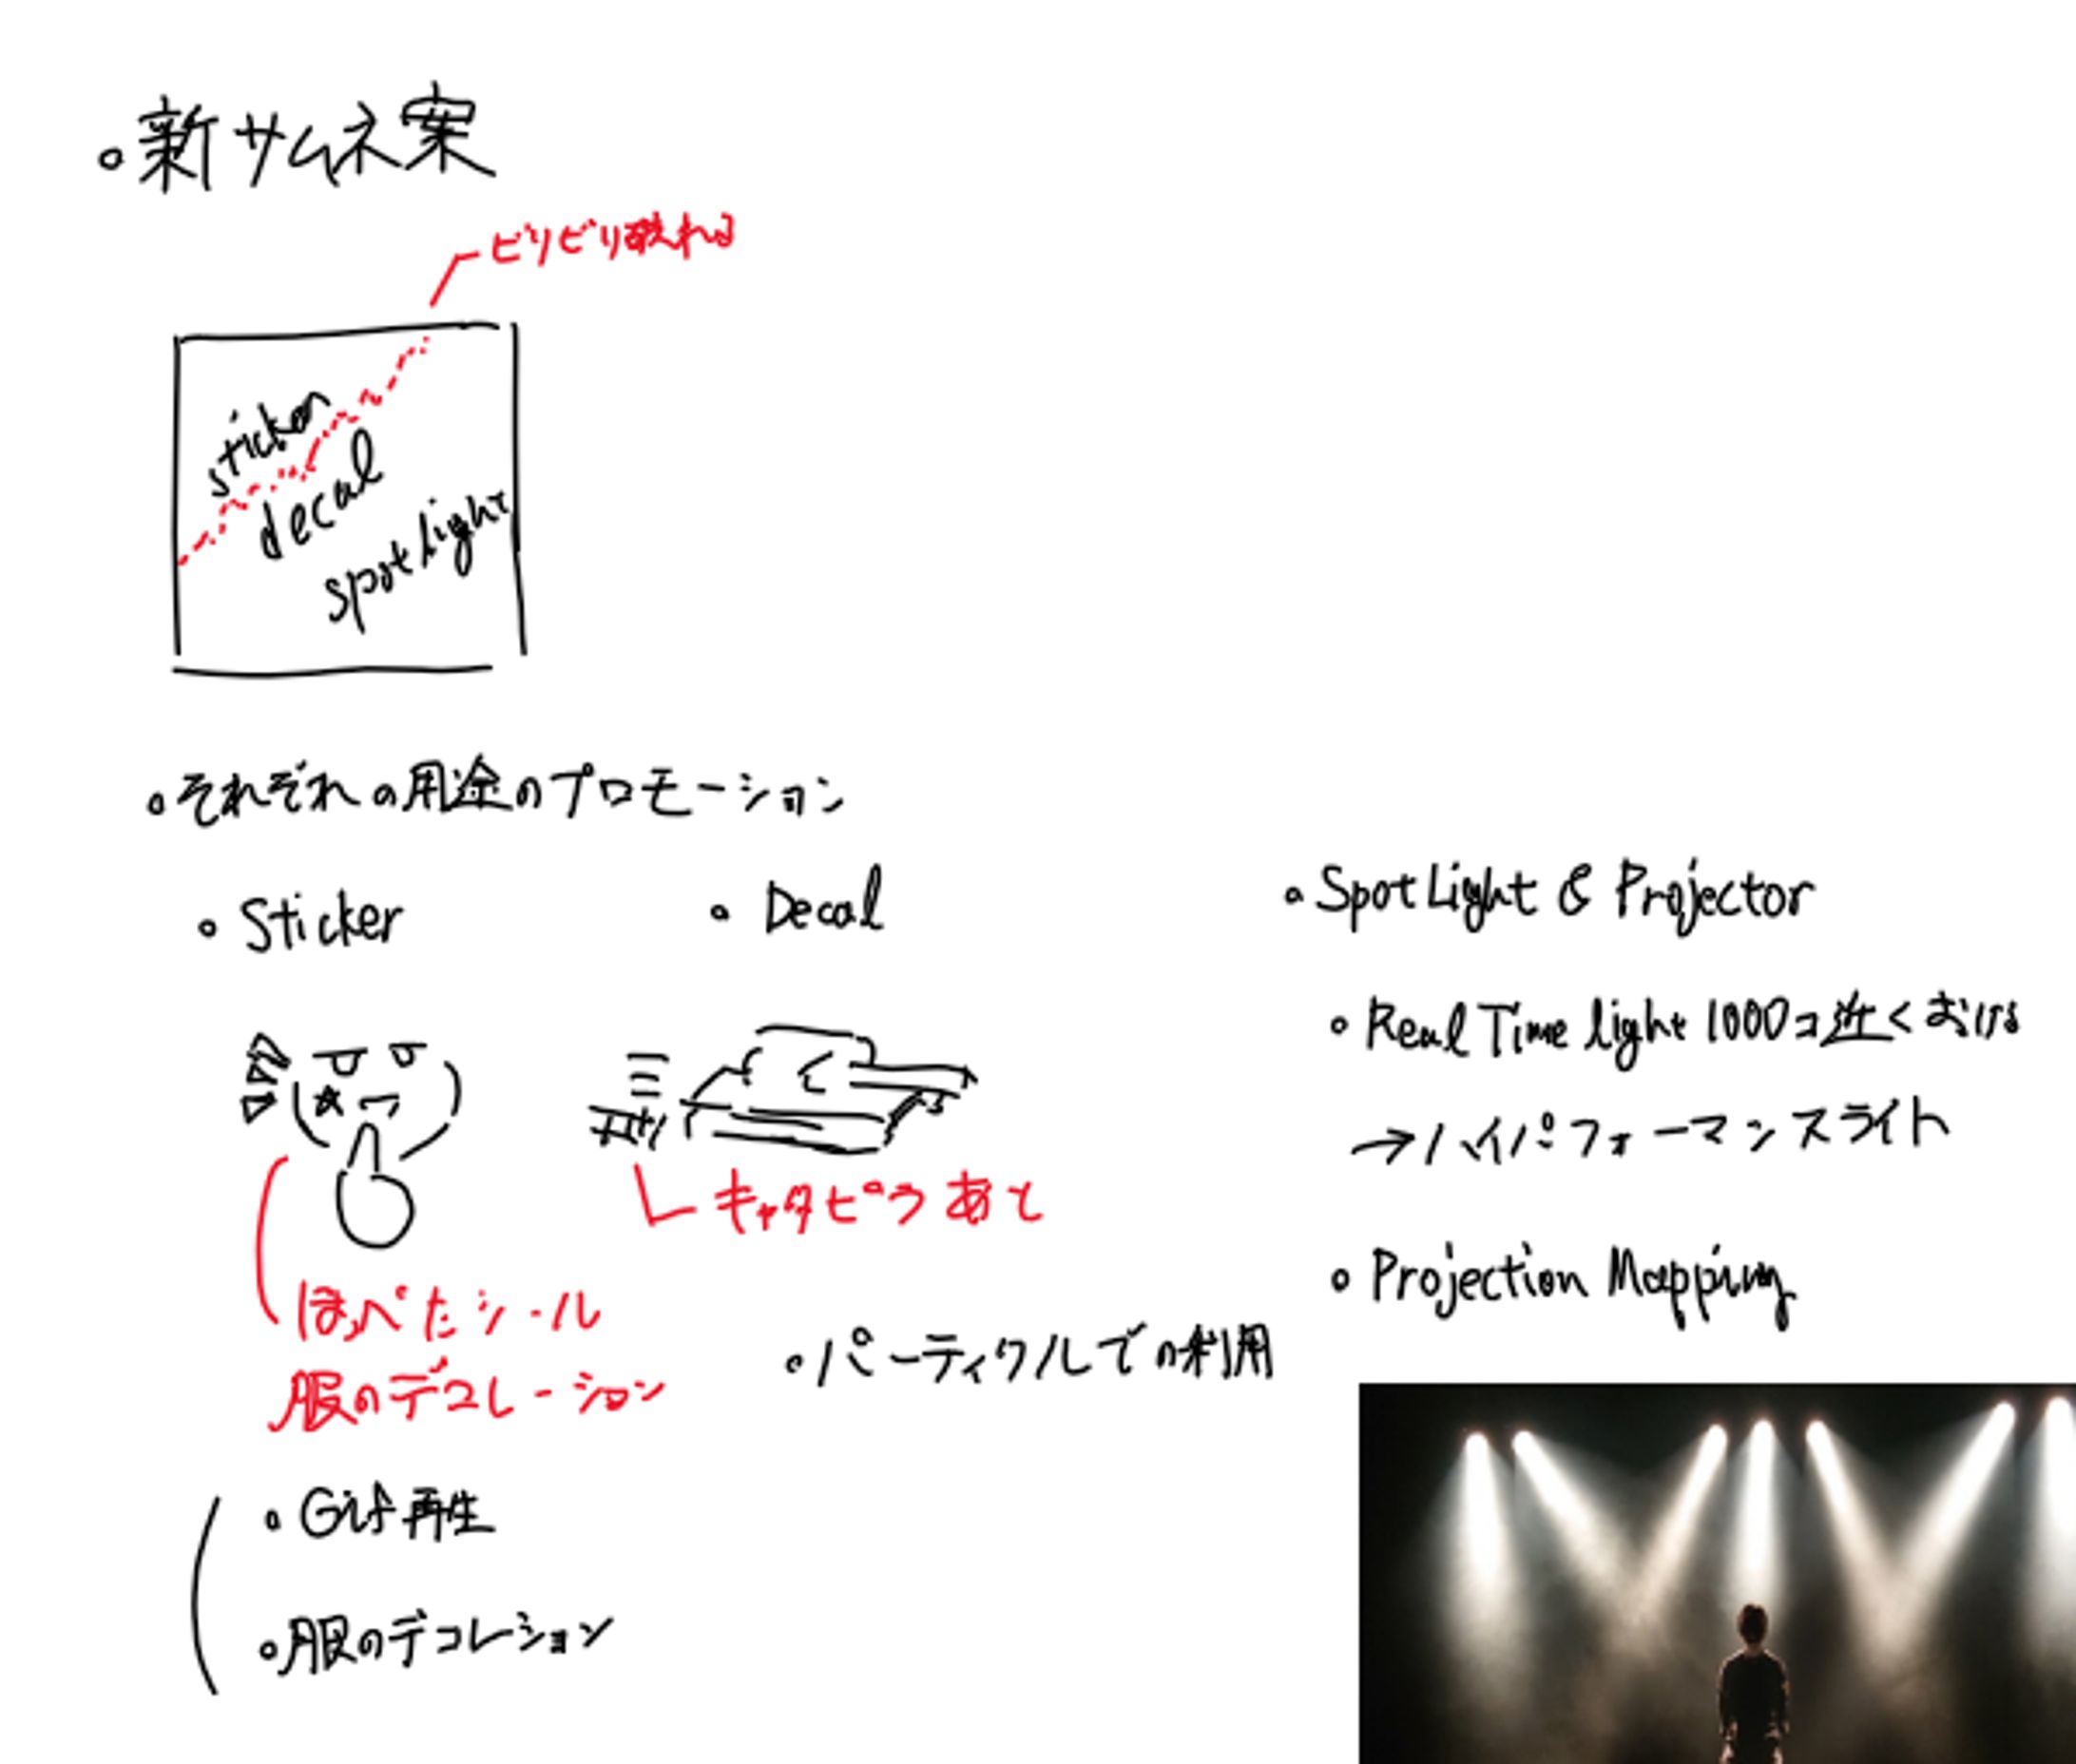 新サムネ案
ビリビリ破れる
sticker
decal
spotlight
それぞれの用途のプロモーション
Sticker
ほっぺたシール
服のデコレーション
Gif再生
服のデコレション
Decal
キャタピラあと
パーティクルでの利用
SpotLight & Projector
RealTime light 1000コ近くおける
→ハイパフォーマンスライト
Projection Mapping